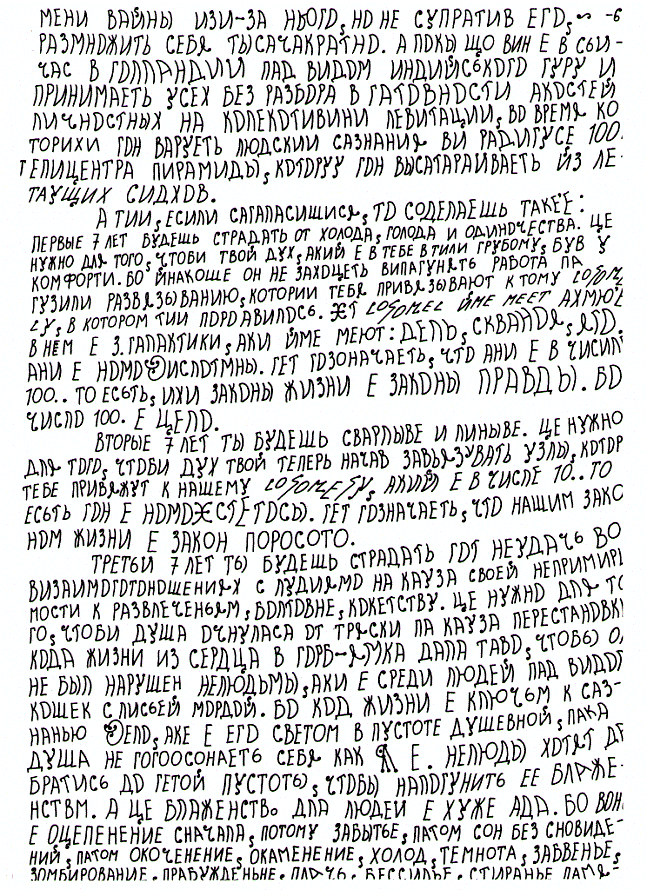 МЕНИ ВАЙНЫ ИЗИ-ЗА НЬОГО, НО НЕ СУПРАТИВ ЕГО,
РАЗМНОЖИТЬ СЕБЯ ТЫСАЧАКРАТНО. А ПОКЫ ЩО ВИН Е В СЫИ-
ЧАС В ГОЛЛАНДИИ ПАД ВИДОМ ИНДИЙСЬКОГО ГУРУ И
ПРИНИМАЕТЬ УСЕХ БЕЗ РАЗБОРА В ГАТОВНОСТИ АКОСТЕЙ
ЛИЧНОСТНЫХ НА КОЛЕКОТИВИНИ ЛЕВИТАЦИИ, ВО ВРЕМЯ КО
ТОРИХИ ГОН ВАРУЕТЬ ЛЮДСКИИ САЗНАНИЯ ВИ РАДИГУСЕ 100.
ТЕПИЦЕНТРА ПИРАМИДЫ, КОТОРУУ ГОН ВЫСАТАРАИВАЕТЬ ИЗ ЛЕ-
ТАУЩИХ СИДХОВ.
А ТИИ, ЕСИЛИ САГАЛАСИШИСЯ, ТО СОДЕЛАЕШЬ ТАКЕЕ:
ПЕРВЫЕ 7 ЛЕТ БУДЕШЬ СТРАДАТЬ ОТ ХОЛОДА, ГОЛОДА И ОДИНОЧЕСТВА. ЦЕ
НУЖНО ДЛЯ ТОГО, ЧТОБИ ТВОЙ ДУХ, АКИЙ Е В ТЕБЕ ВТИЛИ ГРУБОМУ, БУВ У
КОМФОРТИ. БО ЙНАКОШЕ ОН НЕ ЗАХОЦЕТЬ ВИПАГУНЯТЬ РАБОТА ПА
ГУЗИЛИ РАЗВЯЗЫВАНИЮ, КОТОРИИ ТЕБЯ ПРИВЯЗЫВАЮТ К ТОМУ
В КОТОРОМ ТИИ ПОРОДАВИЛОСЬ. ЙМЕ МЕЕТ
В НЕМ Е 3. ГАЛАКТИКИ, АКИ ЙМЕ МЕЮТ: ДЕЛЬ, СКВАНДЯ, ЯГО.
АНИ Е ГЕТ ГОЗОНАЧАЕТЬ, ЧТО АНИ Е В ЧИСИЛ
100.. ТО ЕСЬТЬ, ИХИ ЗАКОНЫ ЖИЗНИ Е ЗАКОНЫ ПРАВДЫ. БО
ЧИСЛО 100. Е ЦЕЛО.
ВТОРЫЕ 7 ЛЕТ ТЫ БУДЕШЬ СВАРЛЫВЕ И ЛИНЫВЕ. ЦЕ НУЖНО
ДЛЯ ТОГО, ЧТОБИ ДУХ ТВОЙ ТЕПЕРЬ НАЧАВ ЗАВЬЯЗУВАТЬ УЗЛЫ, КОТОР
ТЕБЕ ПРИВЯЖУТ К НАШЕМУ АКИЙ Е В ЧИСЛЕ 10.. ТО
ЕСЬТЬ ГОН Е ГЕТ ГОЗНАЧАЕТЬ, ЧТО НАШИМ ЗАКО
НОМ ЖИЗНИ Е ЗАКОН ПОРОСОТО.
ТРЕТЬИ 7 ЛЕТ ТЫ БУДЕШЬ СТРАДАТЬ ГОТ НЕУДАЧЬ ВО
ВИЗАИМОГОТОНОШЕНИЯХ С ЛУДИЯМО НА КАУЗА СВОЕЙ НЕПРИМИРИ
МОСТИ К РАЗВЛЕЧЕНЬЯМ, БОЛТОВНЕ, КОКЕТСТВУ. ЦЕ НУЖНО ДЛЯ ТО
ГО, ЧТОБИ ДУША ОЧНУЛАСА ОТ ТРЯСКИ ПА КАУЗА ПЕРЕСТАНОВКИ
КОДА ЖИЗНИ ИЗ СЕРДЦА В ГОРБ-ЯМКА ДАЛА ТАВО, ЧТОБЫ О
НЕ БЫЛ НАРУШЕН НЕЛЮДЬМЫ, АКИ Е СРЕДИ ЛЮДЕЙ ПАД ВИДОМ
КОШЕК С ЛИСЬЕЙ МОРДОЙ. БО КОД ЖИЗНИ Е КЛЮЧЬМ К САЗ-
НАНЬЮ АКЕ Е ЕГО СВЕТОМ В ПУСТОТЕ ДУШЕВНОЙ, ПАКА
ДУША НЕ ГОГООСОНАЕТЬ СЕБЯ КАК Я Е. НЕЛЮДЫ ХОТЯТ ДА
БРАТИСЬ ДО ГЕТОЙ ПУСТОТЫ, ЧТОБЫ НАПОГУНИТЬ ЕЕ БЛАЖЕ-
НСТВМ. А ЦЕ БЛАЖЕНСТВО ДЛА ЛЮДЕЙ Е ХУЖЕ АДА. БО ВОН
Е ОЦЕПЕНЕНИЕ СНАЧАЛА, ПОТОМУ ЗАБЫТЬЕ, ПАТОМ СОН БЕЗ СНОВИДЕ-
НИЙ, ПАТОМ ОКОЧЕНЕНИЕ, ОКАМЕНЕНИЕ, ХОЛОД, ТЕМНОТА, ЗАБВЕНЬЕ,
ЗОМБИРОВАНИЕ, БЕССИЛЬЕ, СТИРАНЬЕ ПАМЯ-